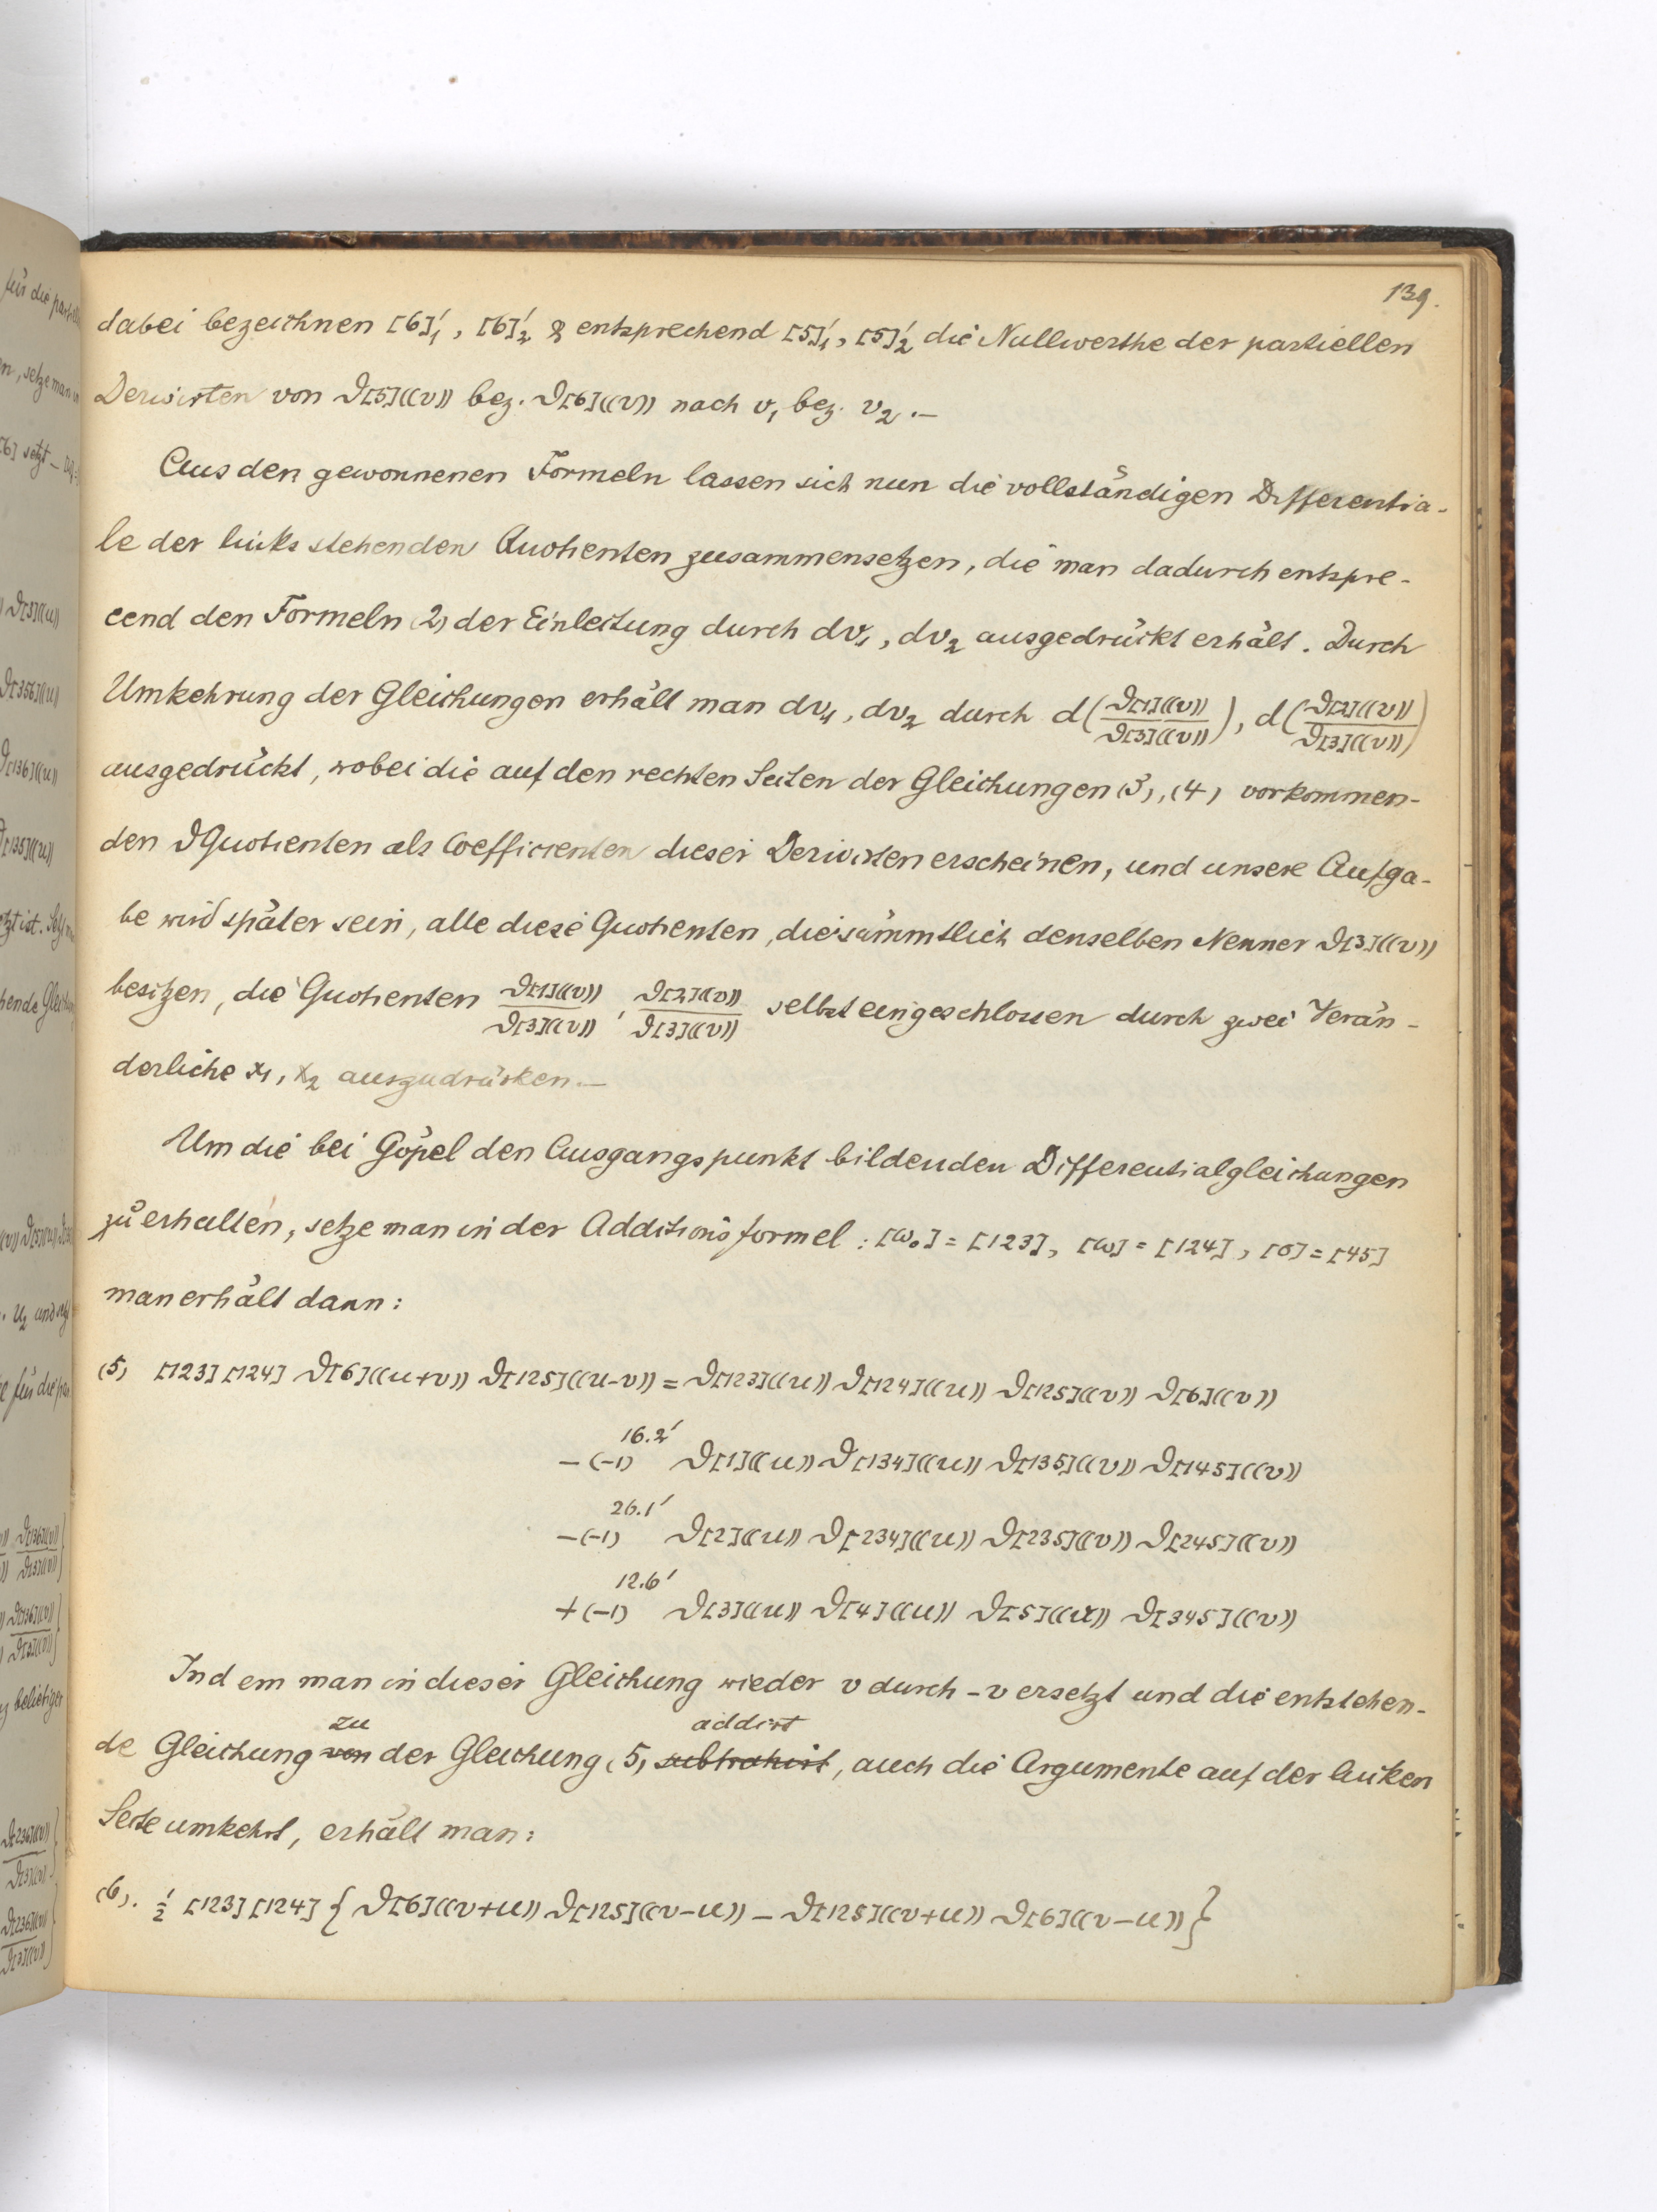 139.
dabei bezeichnen [6]'₁, [6]'₂ & entsprechend [5]'₁, [5]'₂ die Nullwerthe der partiellen
Derivirten von ϑ[5]((v)) bez. ϑ[6]((v)) nach v₁ bez. v₂.—
Aus den gewonnenen Formeln lassen sich nun die vollständigen Differentia-
le der links stehenden Quotienten zusammensetzen, die man dadurch entspre-
cend den Formeln (2) der Einleitung durch dv₁, dv₂ ausgedrückt erhält. Durch
Umkehrung der Gleichungen erhält man dv₁, dv₂ durch d(ϑ[1]((v))/ϑ[3]((v))), d(ϑ[2]((v))/ϑ[3]((v)))
ausgedrückt, wobei die auf den rechten Seiten der Gleichungen (3), (4) vorkommen-
den ϑQuotienten als Coefficienten dieser Derivirten erscheinen, und unsere Aufga-
be wird später sein, alle diese Quotienten, die sämmtlich denselben Nenner ϑ[3]((v))
besitzen, die Quotienten ϑ[1]((v))/ϑ[3]((v)), ϑ[2]((v))/ϑ[3]((v)) selbst eingeschlossen durch zwei Verän-
derliche x₁, x₂ auszudrücken.—
Um die bei Göpel den Ausgangspunkt bildenden Differentialgleichungen
zu erhalten, setze man in der Additionsformel: [ω₀] = [123], [ω] = [124], [σ] = [45]
man erhält dann:
(5) [123] [124] ϑ[6]((u+v)) ϑ[125]((u-v)) = ϑ[123]((u)) ϑ[124]((u)) ϑ[125]((v)) ϑ[6]((v))
– (-1)^{16.2'} ϑ[1]((u)) ϑ[134]((u)) ϑ[135]((v)) ϑ[145]((v))
– (-1)^{26.1'} ϑ[2]((u)) ϑ[234]((u)) ϑ[235]((v)) ϑ[245]((v))
+ (-1)^{12.6'} ϑ[3]((u)) ϑ[4]((u)) ϑ[5]((v)) ϑ[345]((v))
Indem man in dieser Gleichung wieder v durch -v ersetzt und die entstehen-
zu addirt
de Gleichung von der Gleichung (5) subtrahirt, auch die Argumente auf der linken
Seite umkehrt, erhält man:
(6). ½ [123] [124] {ϑ[6]((v+u)) ϑ[125]((v-u)) – ϑ[125]((v+u)) ϑ[6]((v-u))}